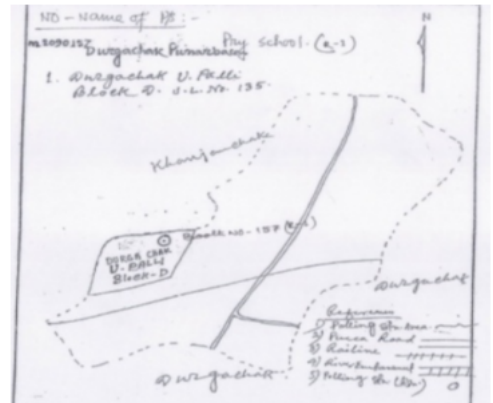 NO - Name of PS : -
Durgachak Punarbasan Pry School. (R-1)
1. Durgachak U. Palli
Block D. J.L. No. 135.
N
Khanjanchak
Booth NO - 157 (R-1)
DURGA CHAK
U-PALLI
Block-D
Durgachak
Durgachak
Reference
1) Polling Sta Area
2) Pucca Road
3) Railine
5) Polling Sta